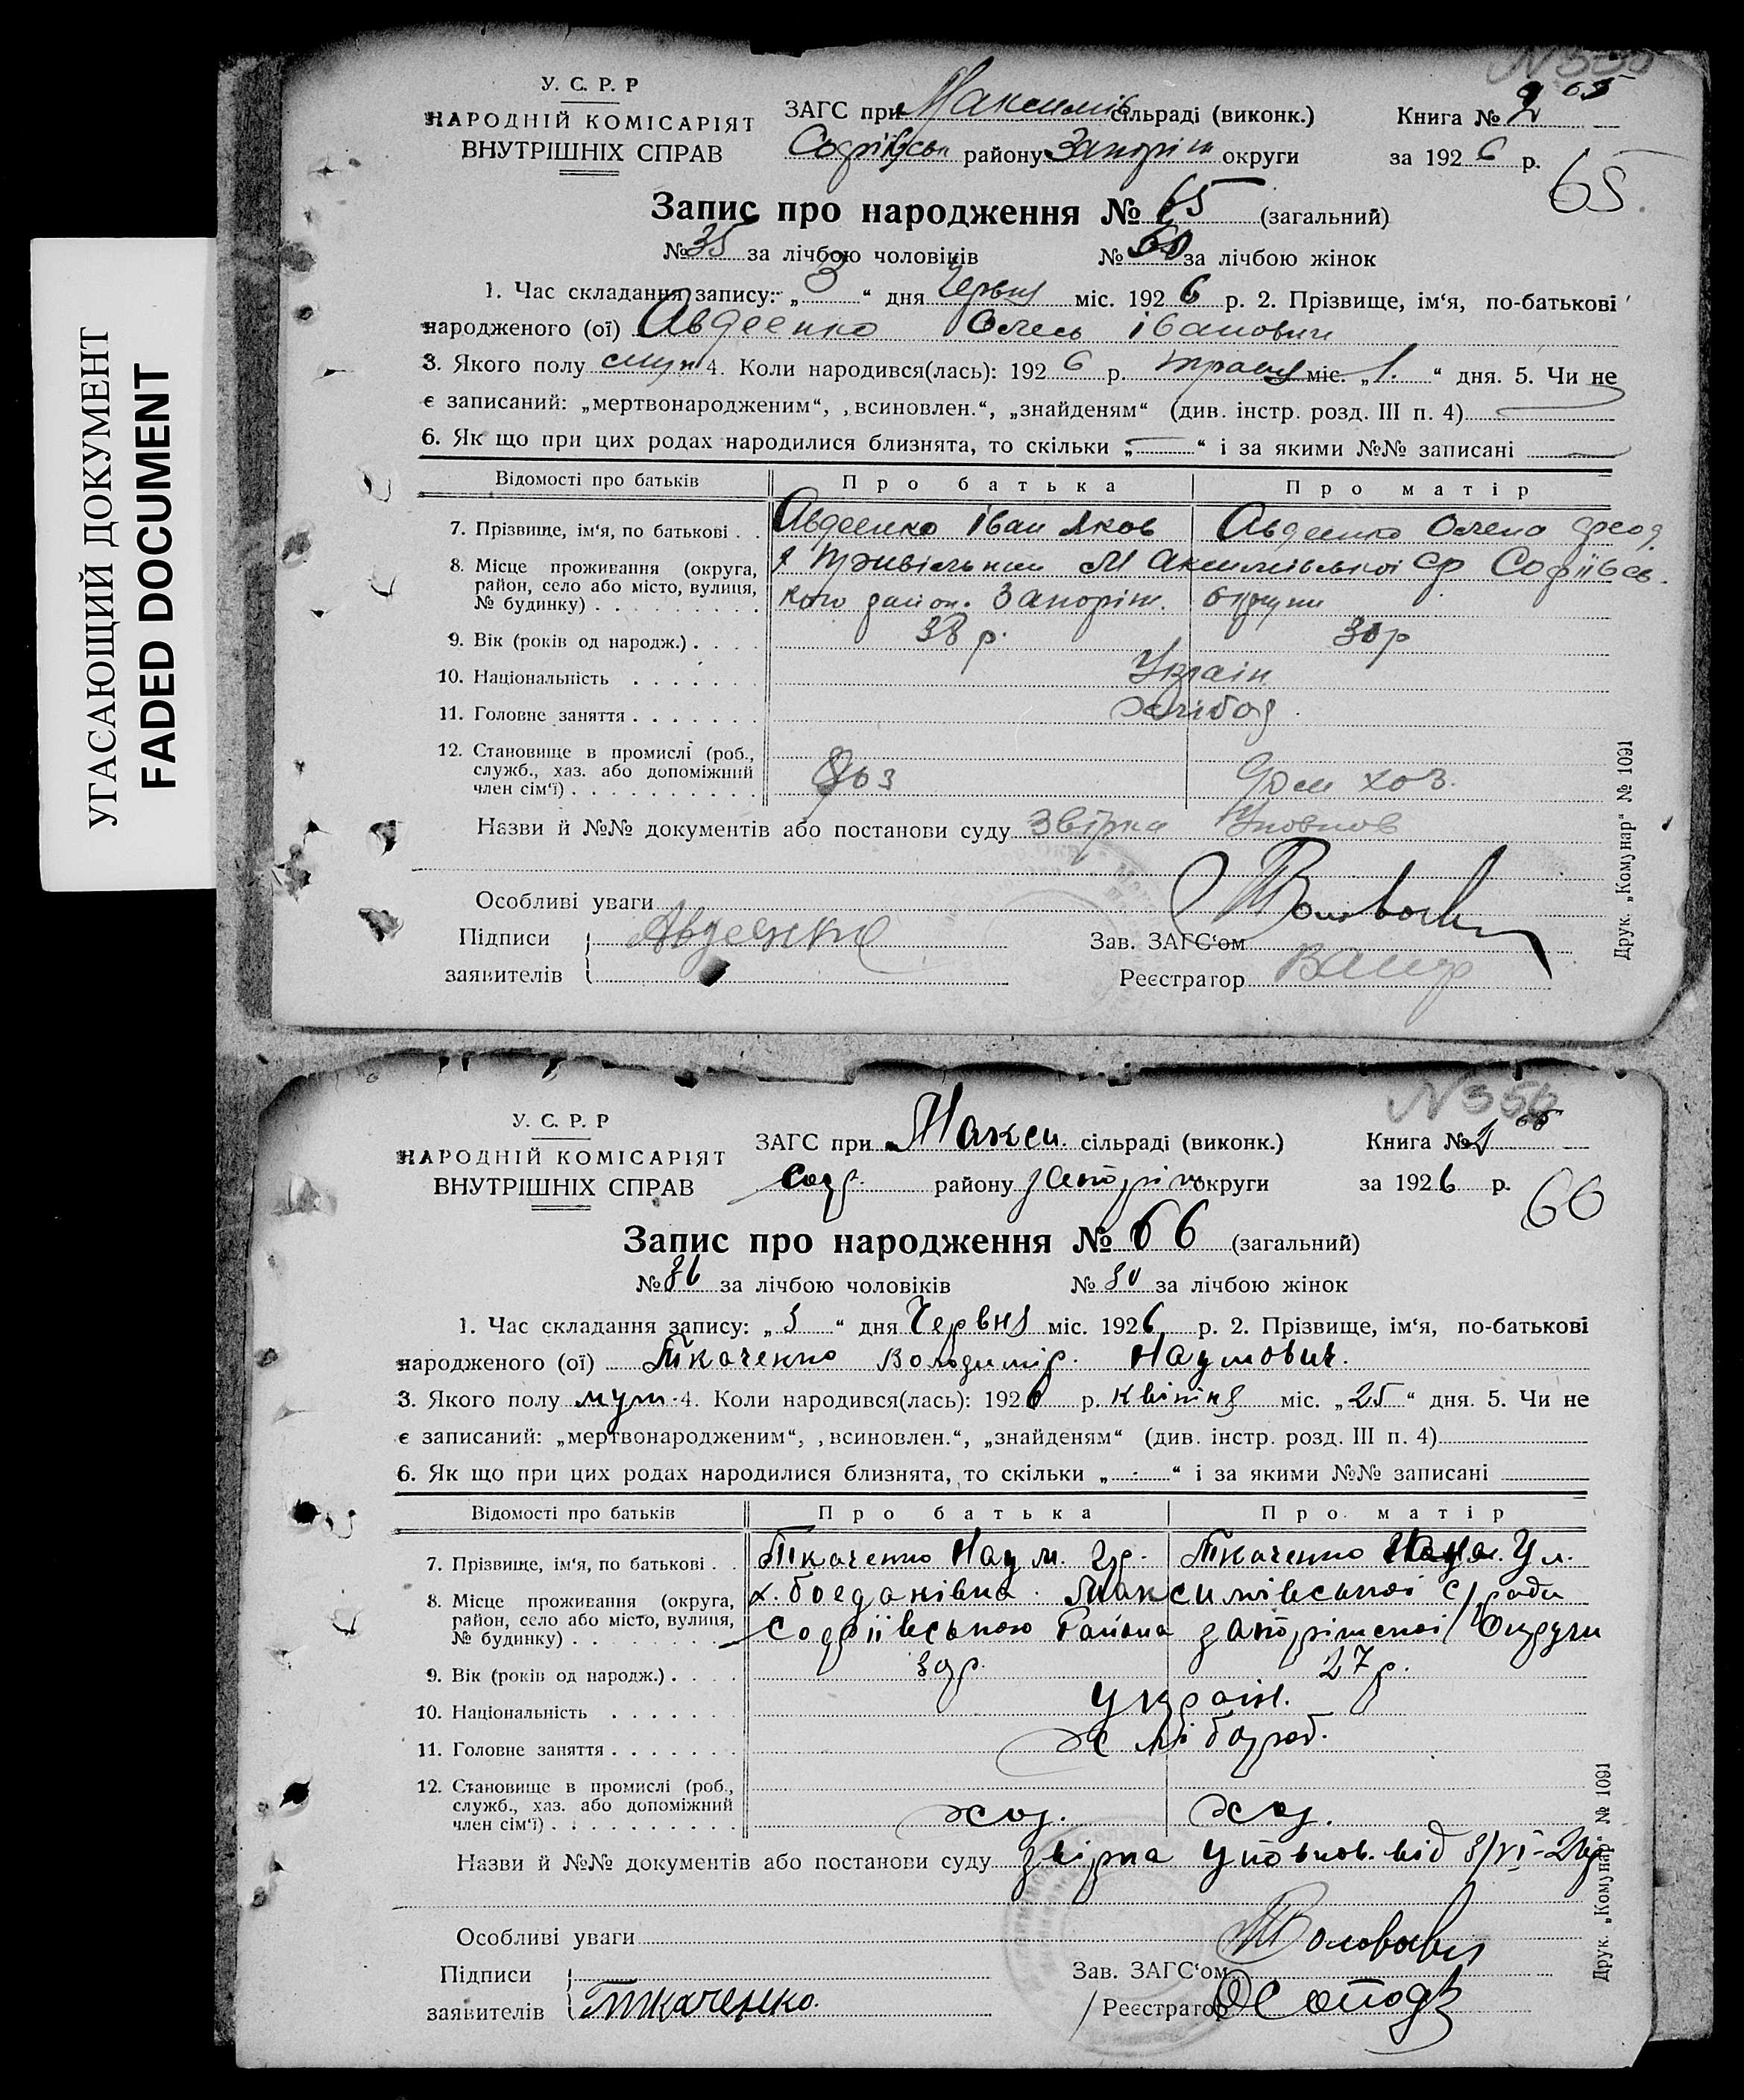 УГАСАЮЩИЙ ДОКУМЕНТ
FADED DOCUMENT
У. С. Р. Р
НАРОДНІЙ КОМІСАРІЯТ
ВНУТРІШНІХ СПРАВ
ЗАГС при Максимів сільраді (виконк.)
Софіївськ району Запоріж округи
Книга № 2
65
за 1926 р.
65
Запис про народження № 65 (загальний)
№ 35 за лічбою чоловіків № за лічбою жінок
1. Час складання запису: „ 3 “ дня Червня міс. 1926 р. 2. Прізвище, ім‘я, по-батькові
народженого (ої) Авдеенко Олесь Іванович
3. Якого полу 4. Коли народився(лась): 1926 р. травня міс. „ 1. “ дня. 5. Чи не
є записаний: „мертвонародженим“, „всиновлен.“, „знайденям“ (див. інстр. розд. III п. 4)
6. Як що при цих родах народилися близнята, то скільки „ — “ і за якими №№ записані —
Відомості про батьків Про батька Про матір
7. Прізвище, ім‘я, по батькові . . Авдеенко Іван Яков Авдеенко Олена Феод.
8. Місце проживання (округа, район, село або місто, вулиця, № будинку) . . . . . . . . . . Максимівської ср Софіївсь
кого район. Запоріж. округи
9. Вік (років од народж.) . . . . 38 р. 30 р
10. Національність . . . . . . . Украін
11. Головне заняття . . . . . . . Хлібор
12. Становище в промислі (роб., служб., хаз. або допоміжний член сім‘ї) . . . . . . . . . . . хоз.
Назви й №№ документів або постанови суду Звірка Уповнов
Особливі уваги
Підписи
заявителів Авдеенко
Зав. ЗАГС‘ом
Реєстратор
Друк. „Комунар“ № 1091
N 356
У. С. Р. Р
НАРОДНІЙ КОМІСАРІЯТ
ВНУТРІШНІХ СПРАВ
ЗАГС при Макси. сільраді (виконк.)
Соф. району Запоріж округи
Книга № 2
66
за 1926 р.
66
Запис про народження № 66 (загальний)
№ 36 за лічбою чоловіків № 30 за лічбою жінок
1. Час складання запису: „ 3 “ дня Червня міс. 1926 р. 2. Прізвище, ім‘я, по-батькові
народженого (ої) Ткаченко Володимір. Наумович.
3. Якого полу муж. 4. Коли народився(лась): 1926 р. квітня міс. „ 25 “ дня. 5. Чи не
є записаний: „мертвонародженим“, „всиновлен.“, „знайденям“ (див. інстр. розд. III п. 4)
6. Як що при цих родах народилися близнята, то скільки „ - “ і за якими №№ записані
Відомості про батьків Про батька Про матір
7. Прізвище, ім‘я, по батькові . . Ткаченко Наум. Ткаченко
8. Місце проживання (округа, район, село або місто, вулиця, № будинку) . . . . . . . . х. богданівка. Максимівської с/ради
Софіївського Района Запоріжської Округи
9. Вік (років од народж.) . . . . 27 р.
10. Національність . . . . . . . україн.
11. Головне заняття . . . . . . . хлібороб.
12. Становище в промислі (роб., служб., хаз. або допоміжний член сім‘ї) . . . . . . . . . . хоз. хоз.
Назви й №№ документів або постанови суду звірка уповнов. від 3/VI-26р
Особливі уваги
Підписи
заявителів Ткаченко.
Зав. ЗАГС‘ом
Реєстратор
Друк. „Комунар“ № 1091